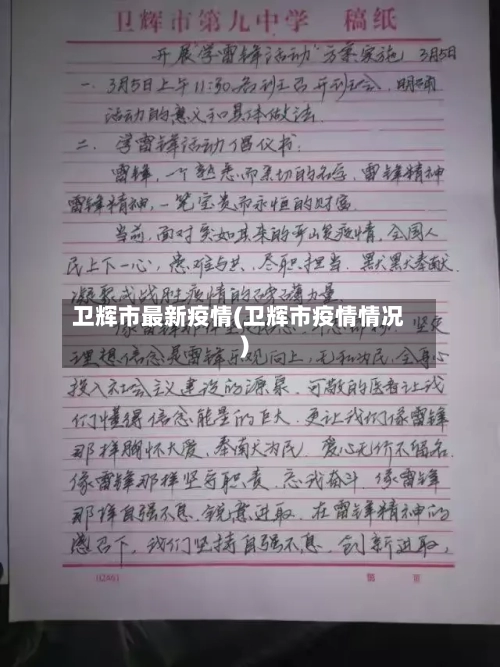 卫辉市第九中学 稿纸
开展学雷锋活动"方案实施 3月5日
一、3月5日上午11:30各班召开班会,明确
活动的意义和具体做法.
二、学雷锋活动倡仪书:
雷锋,一个熟悉而亲切的名字,雷锋精神
雷锋精神,一笔宝贵而永恒的财富.
当前,面对突如其来的新冠疫情,全国人
民上下一心,患难与共,尽职担当.默默奉献.
凝聚成战胜疫情的磅礴力量.
卫辉市最新疫情(卫辉市疫情情况
)
坚定
理想信念是雷锋乐观向上,无私为民,全身心
投入社会主义建设的源泉.可敬的医者让我
们懂得信念能量的巨大.更让我们像雷锋
那样胸怀大爱,奉献为民.爱心无价不留名.
像雷锋那样坚守职责.忘我奋斗.像雷锋
那样自强不息.锐意进取.在雷锋精神的
感召下,我们坚持自强不息.创新进取,